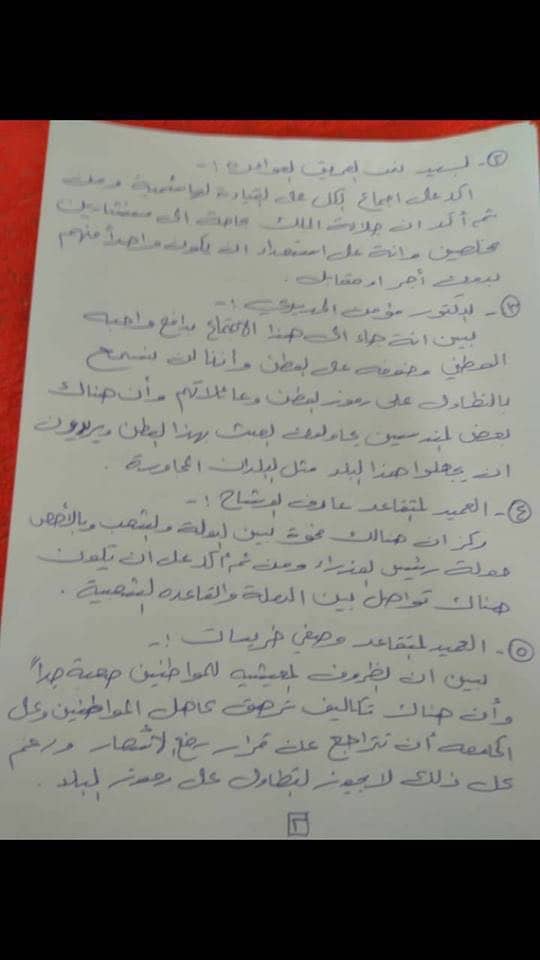 ٢- السيد نايف الفريق العوامره :-
اكد على اجماع الكل على القيادة الهاشمية ومن
ثم أكد ان جلالة الملك بحاجة الى مستشارين
مخلصين وانه على استعداد ان يكون واحداً منهم
بدون أجر او مقابل .
٣- الدكتور مؤمن الحديدي :-
بين انه جاء الى هذا الاجتماع بدافع واجبه
الوطني وخوفه على الوطن وأننا لن نسمح
بالتطاول على رموز الوطن وعائلاتهم وأن هناك
بعض المندسين يحاولون العبث بهذا الوطن ويريدون
ان يجعلوا هذا البلد مثل البلدان المجاورة .
٤- العميد المتقاعد عارف الوشاح :-
ركز ان هنالك فجوة بين الدولة والشعب وبالأخص
دولة رئيس الوزراء ومن ثم أكد على ان يكون
هناك تواصل بين الدولة والقاعده الشعبية .
٥- العميد المتقاعد وصفي خريسات :-
بين ان الظروف المعيشيه للمواطنين صعبة جداً
وأن هناك تكاليف ترهق كاهل المواطنين وعلى
الحكومه أن تتراجع عن قرار رفع الأسعار ورغم
كل ذلك لا يجوز التطاول على رموز البلد .
٢